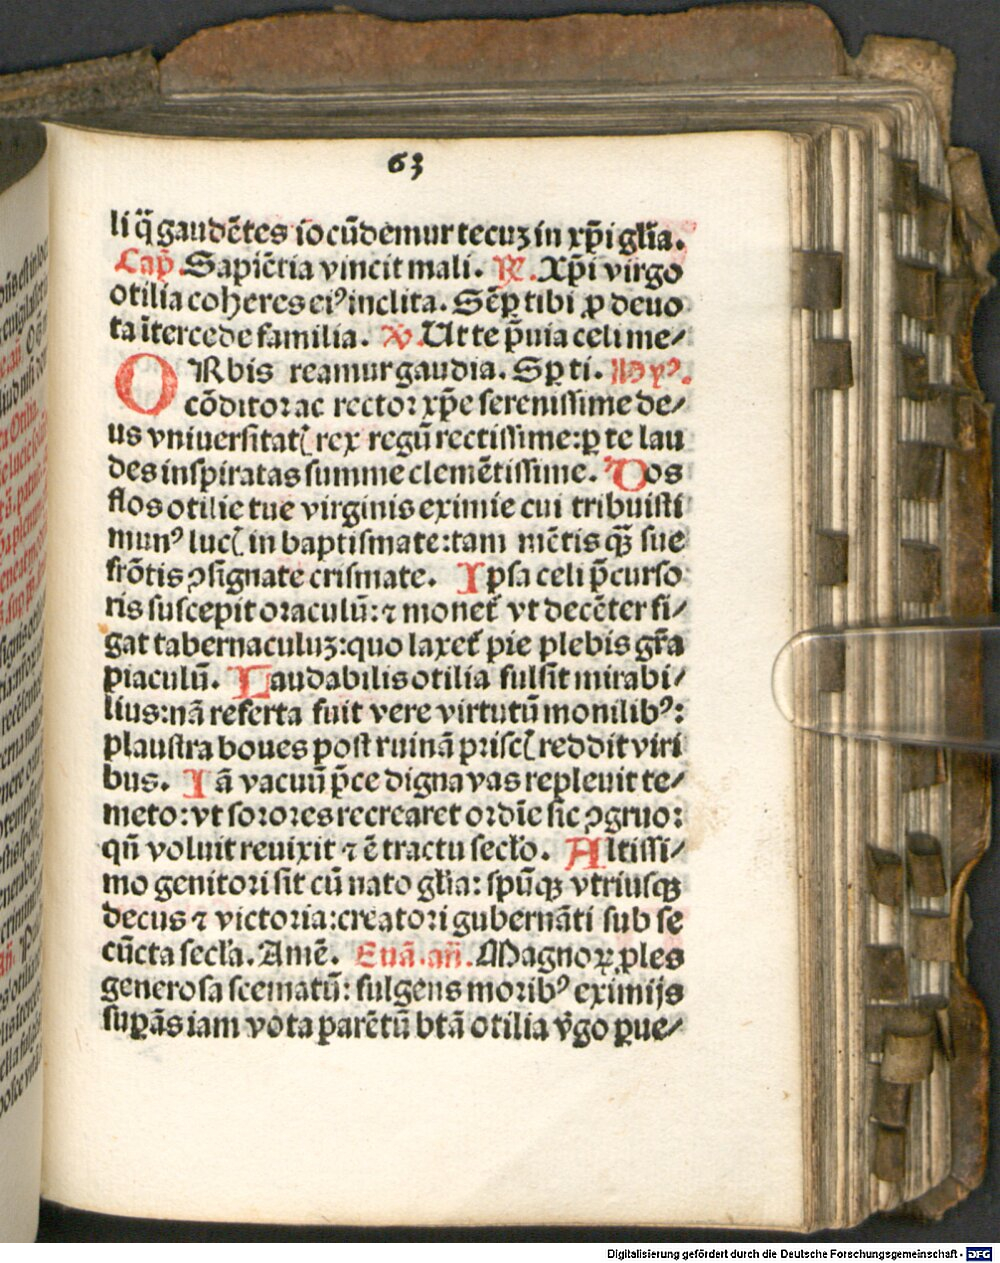 63
li q̃ gaudētes iocūdemur tecuꝫ in xp̄i gl̄ia.
Cap̄. Sapiētia vincit mali. ℟. Xp̄i virgo
otilia coheres eiꝰ inclita. Sēꝑ tibi ꝓ deuo
ta ītercede familia. ℣. Ut te p̄uia celi me⸗
ORbis reamur gaudia. Sp̄ ti.
cōditor ac rector xp̄e serenissime de⸗
us vniuersitatꝭ rex regū rectissime: ꝑ te lau
des inspiratas summe clemētissime. Dos
flos otilie tue virginis eximie cui tribuisti
munꝰ lucꝭ in baptismate: tam mētis qꝫ̄ sue
frōtis ꝯsignate crismate. Ipsa celi p̄curso
ris suscepit oraculū: ⁊ monet᷑ vt decēter fi⸗
gat tabernaculuꝫ: quo laxet᷑ pie plebis gr̄a
piaculū. Laudabilis otilia fulsit mirabi⸗
lius: nā referta fuit vere virtutū monilibꝰ:
plaustra boues post ruinā priscꝭ reddit viri
bus. Iā vacuū p̄ce digna vas repleuit te⸗
meto: vt sorores recrearēt ordīe sic ꝯgruo:
qn̄ voluit reuixit ⁊ ē tractu secl̄o. Altissi⸗
mo genitori sit cū nato gl̄ia: spūqꝫ vtriusqꝫ
decus ⁊ victoria: creatori gubernāti sub se
cūcta secl̄a. Amē. Euā. an̄. Magnoꝝ ꝓles
generosa scematū: fulgens moribꝰ eximijs
suꝑās iam vota parētū btā otilia v̄go pue⸗
Digitalisierung gefördert durch die Deutsche Forschungsgemeinschaft - DFG